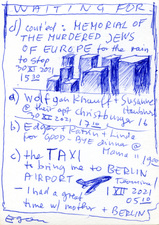 WAITING FOR
d) cont'd: MEMORIAL OF
THE MURDERED JEWS
OF EUROPE for the rain
to stop
30 XI 2021
15 00
a) Wolfgan Knauff + Susanne
@ their apt christburger 16
30 XI 2021 17 00
b) Edgar + Katrin + Linde
for GOOD-BYE dinner @
19 00
c) the TAXI
to bring me to BERLIN
AIRPORT
1 XII 2021
05 10
- I had a great
time w/ mother + BERLIN